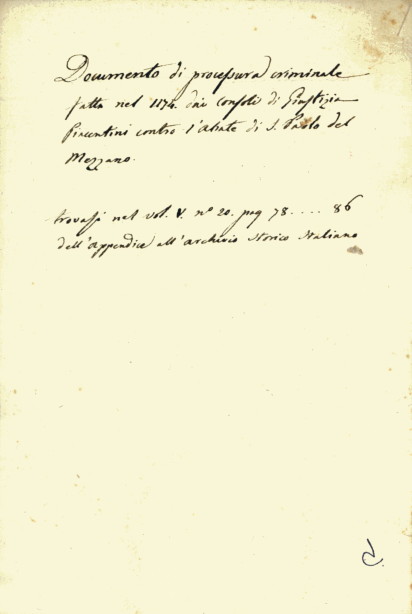 Documento di processura criminale
fatta nel 1174. dai Consoli di Giustizia
Piacentini contro l'abate di S. Paolo del
Mezzano.
trovasi nel vol. V. nº 20. pag 78 .... 86
dell'appendice all'archivio storico Italiano